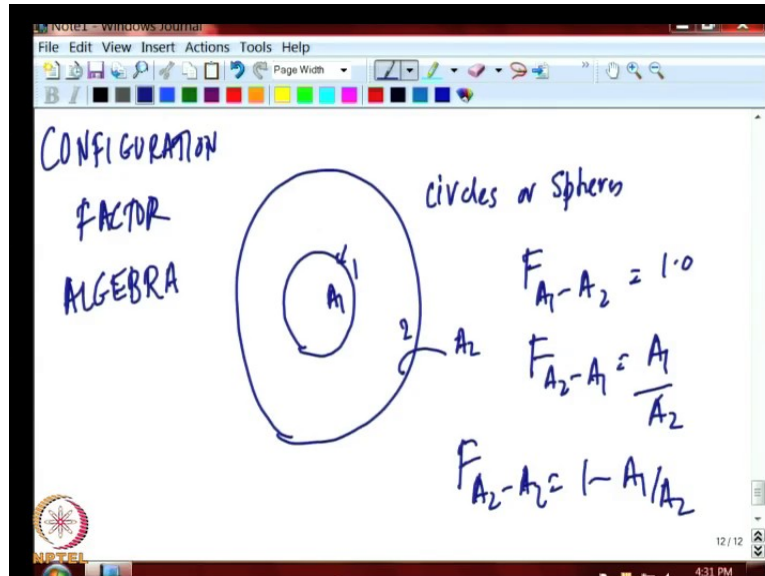 Note1 - Windows Journal
File Edit View Insert Actions Tools Help
Page Width
B I
CONFIGURATION
FACTOR
ALGEBRA
circles or spheres
1
A1
2
A2
F A1-A2 = 1.0
F A2-A1 = A1/A2
F A2-A2 = 1-A1/A2
12/12
NPTEL
4:31 PM